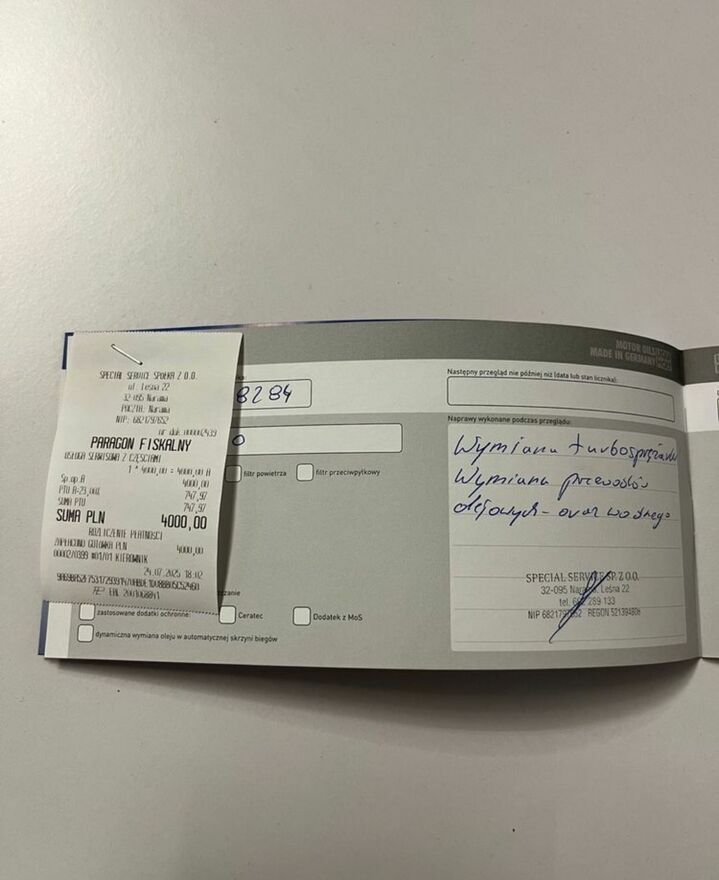 SPECIAL SERVICE SPÓŁKA Z O.O.
ul. Leśna 22
32-095 Narama
POCZTA: Narama
NIP: 6821797652
nr dok.
PARAGON FISKALNY
USŁUGA SERWISOWA Z CZĘŚCIAMI
1 * 4000,00 = 4000,00 A
Sp.op.A 4000,00
PTU A=23,00% 747,97
SUMA PTU 747,97
SUMA PLN 4000,00
ROZLICZENIE PŁATNOŚCI
ZAPŁACONO GOTÓWKA PLN 4000,00
#01/01 KIEROWNIK
24.07.2025 18:02
8284
0
filtr powietrza
filtr przeciwpyłkowy
zastosowane dodatki ochronne:
Ceratec
Dodatek z MoS
dynamiczna wymiana oleju w automatycznej skrzyni biegów
MOTOR OILS
MADE IN GERMANY
Następny przegląd nie później niż (data lub stan licznika):
Naprawy wykonane podczas przeglądu:
Wymiana turbosprężarki
Wymiana przewodów
olejowych - oraz wodnego
SPECIAL SERVICE SP. Z O.O.
32-095 Narama, Leśna 22
tel. 289 133
NIP 6821797652 REGON 521394806